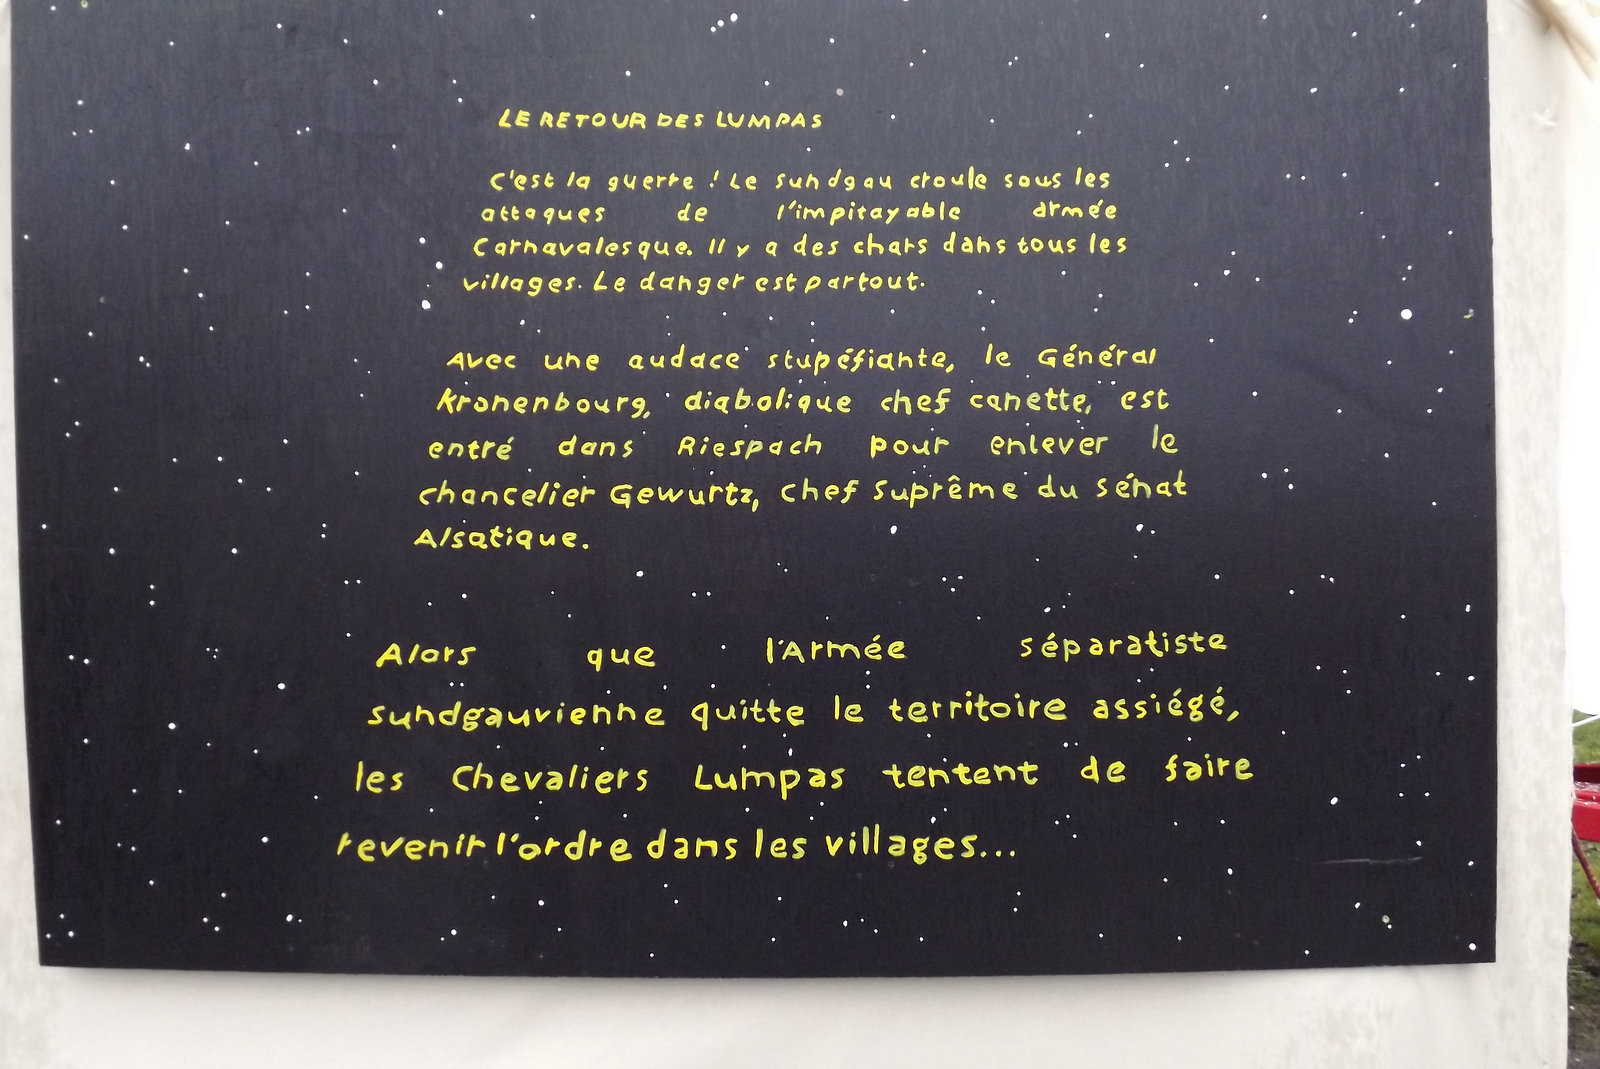 LE RETOUR DES LUMPAS
C'est la guerre ! Le Sundgau croule sous les
attaques de l'impitayable armée
Carnavalesque. Il y a des chars dans tous les
villages. Le danger est partout.
Avec une audace stupéfiante, le Général
Kronenbourg, diabolique chef canette, est
entré dans Riespach pour enlever le
chancelier Gewurtz, chef Suprême du Sénat
Alsatique.
Alors que l'Armée séparatiste
sundgauvienne quitte le territoire assiégé,
les Chevaliers Lumpas tentent de faire
revenir l'ordre dans les villages...